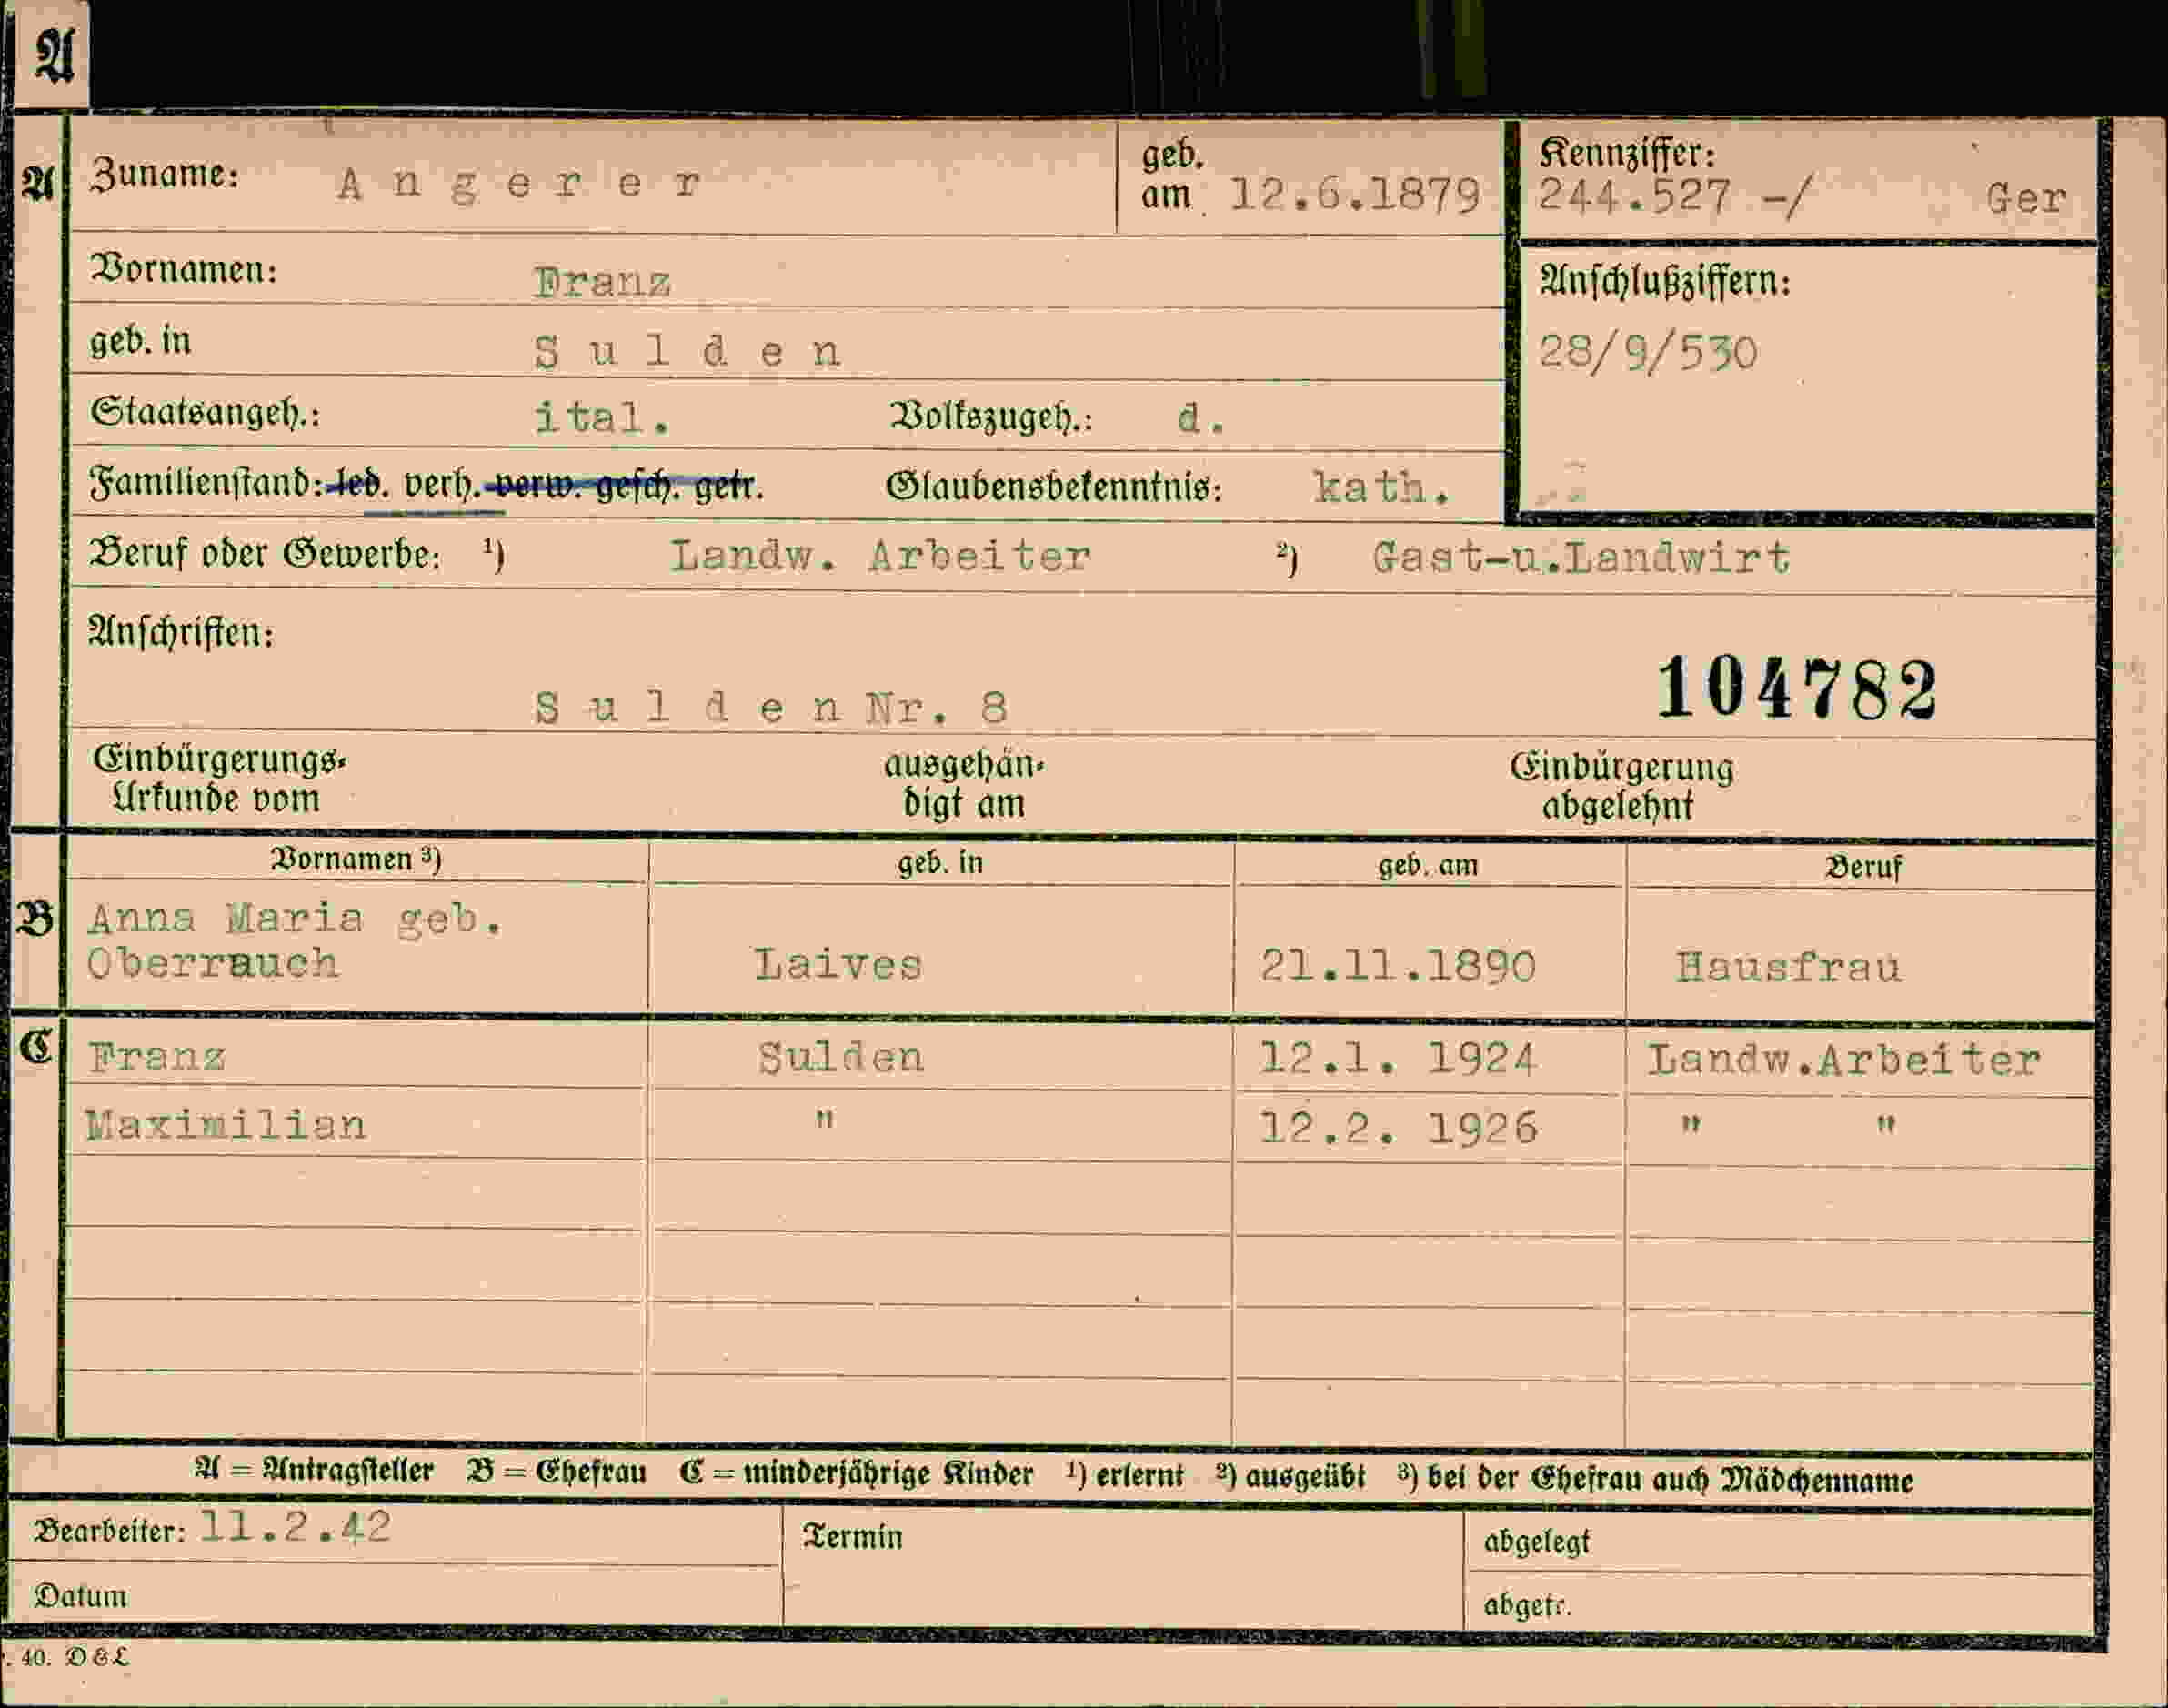 A
A Zuname: Angerer geb. am 12.6.1879 Kennziffer: 244.527 -/ Ger
Vornamen: Franz
Anschlußziffern:
geb. in Sulden
28/9/530
Staatsangeh.: ital. Volkszugeh.: d.
Familienstand: led. verh. verw. gesch. getr. Glaubensbekenntnis: kath.
Beruf oder Gewerbe: ¹) Landw. Arbeiter ²) Gast-u.Landwirt
Anschriften:
Sulden Nr. 8 104782
Einbürgerungs- ausgehän- Einbürgerung
Urkunde vom digt am abgelehnt
Vornamen ³) geb. in geb. am Beruf
B Anna Maria geb.
Oberrauch Laives 21.11.1890 Hausfrau
C Franz Sulden 12.1. 1924 Landw.Arbeiter
Maximilian " 12.2. 1926 " "
A = Antragsteller B = Ehefrau C = minderjährige Kinder ¹) erlernt ²) ausgeübt ³) bei der Ehefrau auch Mädchenname
Bearbeiter: 11.2.42 Termin abgelegt
Datum abgetr.
. 40. D & L